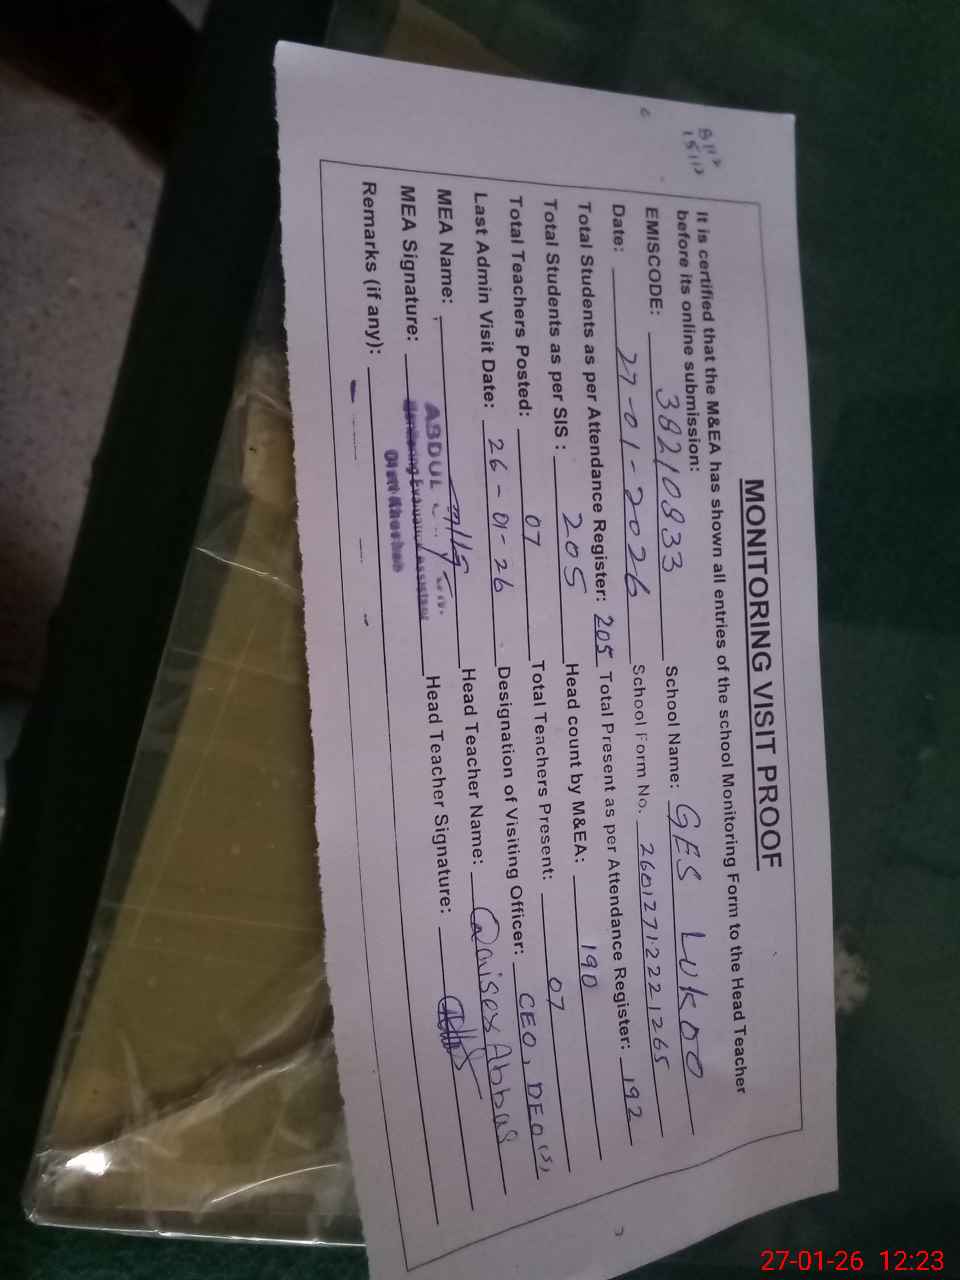 MONITORING VISIT PROOF
It is certified that the M&EA has shown all entries of the school Monitoring Form to the Head Teacher
before its online submission:
EMISCODE: 38210833 School Name: GES LUKOO
Date: 27-01-2026 School Form No. 26012712221265
Total Students as per Attendance Register: 205 Total Present as per Attendance Register: 192
Total Students as per SIS : 205 Head count by M&EA: 190
Total Teachers Posted: 07 Total Teachers Present: 07
Last Admin Visit Date: 26-01-26 Designation of Visiting Officer: CEO, DEO(S)
MEA Name: Head Teacher Name: Qaiser Abbas
MEA Signature: ABDUL Head Teacher Signature:
Monitoring Evaluation Assistant
Remarks (if any):
27-01-26 12:23